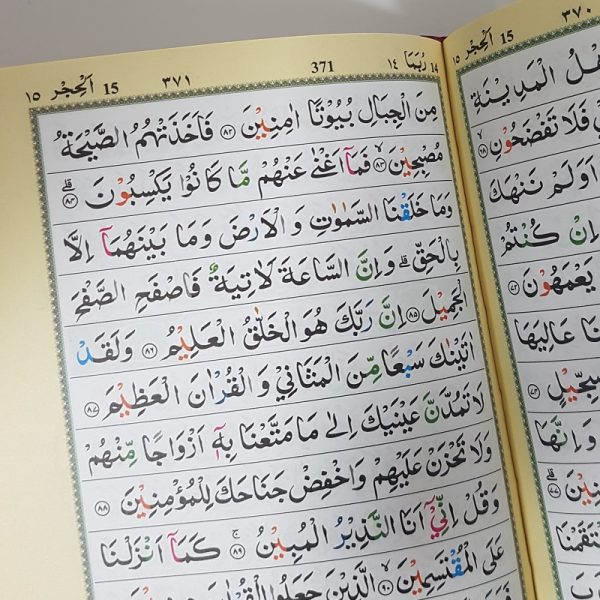 ١٤ رُبَمَا 14 371 ٣٧١ 15 اَلْحِجْر ١٥
مِنَ الْجِبَالِ بُيُوْتًا اٰمِنِيْنَ ﴿٨٢﴾ فَاَخَذَتْهُمُ الصَّيْحَةُ
مُصْبِحِيْنَ ﴿٨٣﴾ فَمَاۤ اَغْنٰى عَنْهُمْ مَّا كَانُوْا يَكْسِبُوْنَ ﴿٨٤﴾
وَمَا خَلَقْنَا السَّمٰوٰتِ وَالْاَرْضَ وَمَا بَيْنَهُمَاۤ اِلَّا
بِالْحَقِّ ؕ وَاِنَّ السَّاعَةَ لَاٰتِيَةٌ فَاصْفَحِ الصَّفْحَ
الْجَمِيْلَ ﴿٨٥﴾ اِنَّ رَبَّكَ هُوَ الْخَلّٰقُ الْعَلِيْمُ ﴿٨٦﴾ وَلَقَدْ
اٰتَيْنٰكَ سَبْعًا مِّنَ الْمَثَانِيْ وَالْقُرْاٰنَ الْعَظِيْمَ ﴿٨٧﴾
لَا تَمُدَّنَّ عَيْنَيْكَ اِلٰى مَا مَتَّعْنَا بِهٖۤ اَزْوَاجًا مِّنْهُمْ
وَلَا تَحْزَنْ عَلَيْهِمْ وَاخْفِضْ جَنَاحَكَ لِلْمُؤْمِنِيْنَ ﴿٨٨﴾
وَقُلْ اِنِّيْۤ اَنَا النَّذِيْرُ الْمُبِيْنُ ﴿٨٩﴾ كَمَاۤ اَنْزَلْنَا
عَلَى الْمُقْتَسِمِيْنَ ﴿٩٠﴾ الَّذِيْنَ جَعَلُوا الْقُرْاٰنَ
٣٧٠ 15 اَلْحِجْر ١٥
هْلُ الْمَدِيْنَةِ
فَلَا تَفْضَحُوْنِ ﴿٦٨﴾
اَوَلَمْ نَنْهَكَ
اِنْ كُنْتُمْ
يَعْمَهُوْنَ ﴿٧٢﴾
نَا عَالِيَهَا
سِجِّيْلٍ ﴿٧٤﴾
وَاِنَّهَا
نِيْنَ ﴿٧٧﴾
تَقَمْنَا